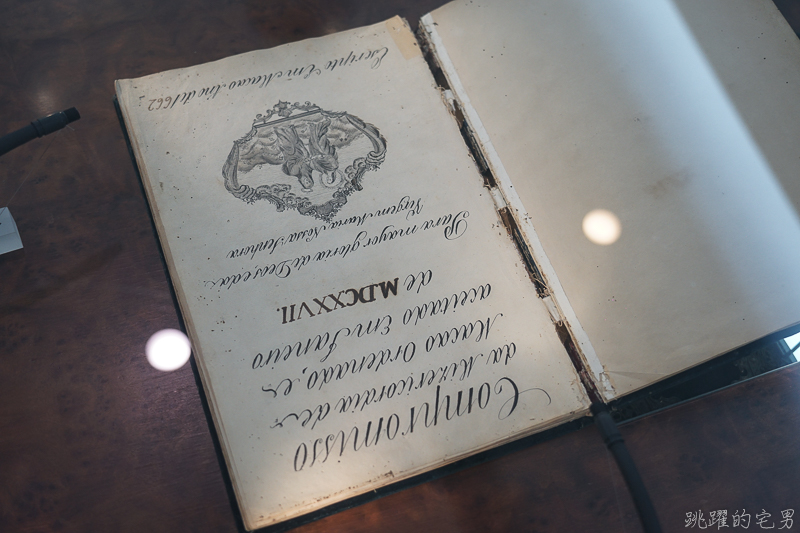 Compromisso
da Mizericordia de
Macao Ordenado, e
aceitado Em Janeiro
de MDCXXVII.
Para mayor gloria de Deos e da
Virgem Maria Nossa Senhora
Escripto Em Macao Ano de 1662
跳躍的宅男